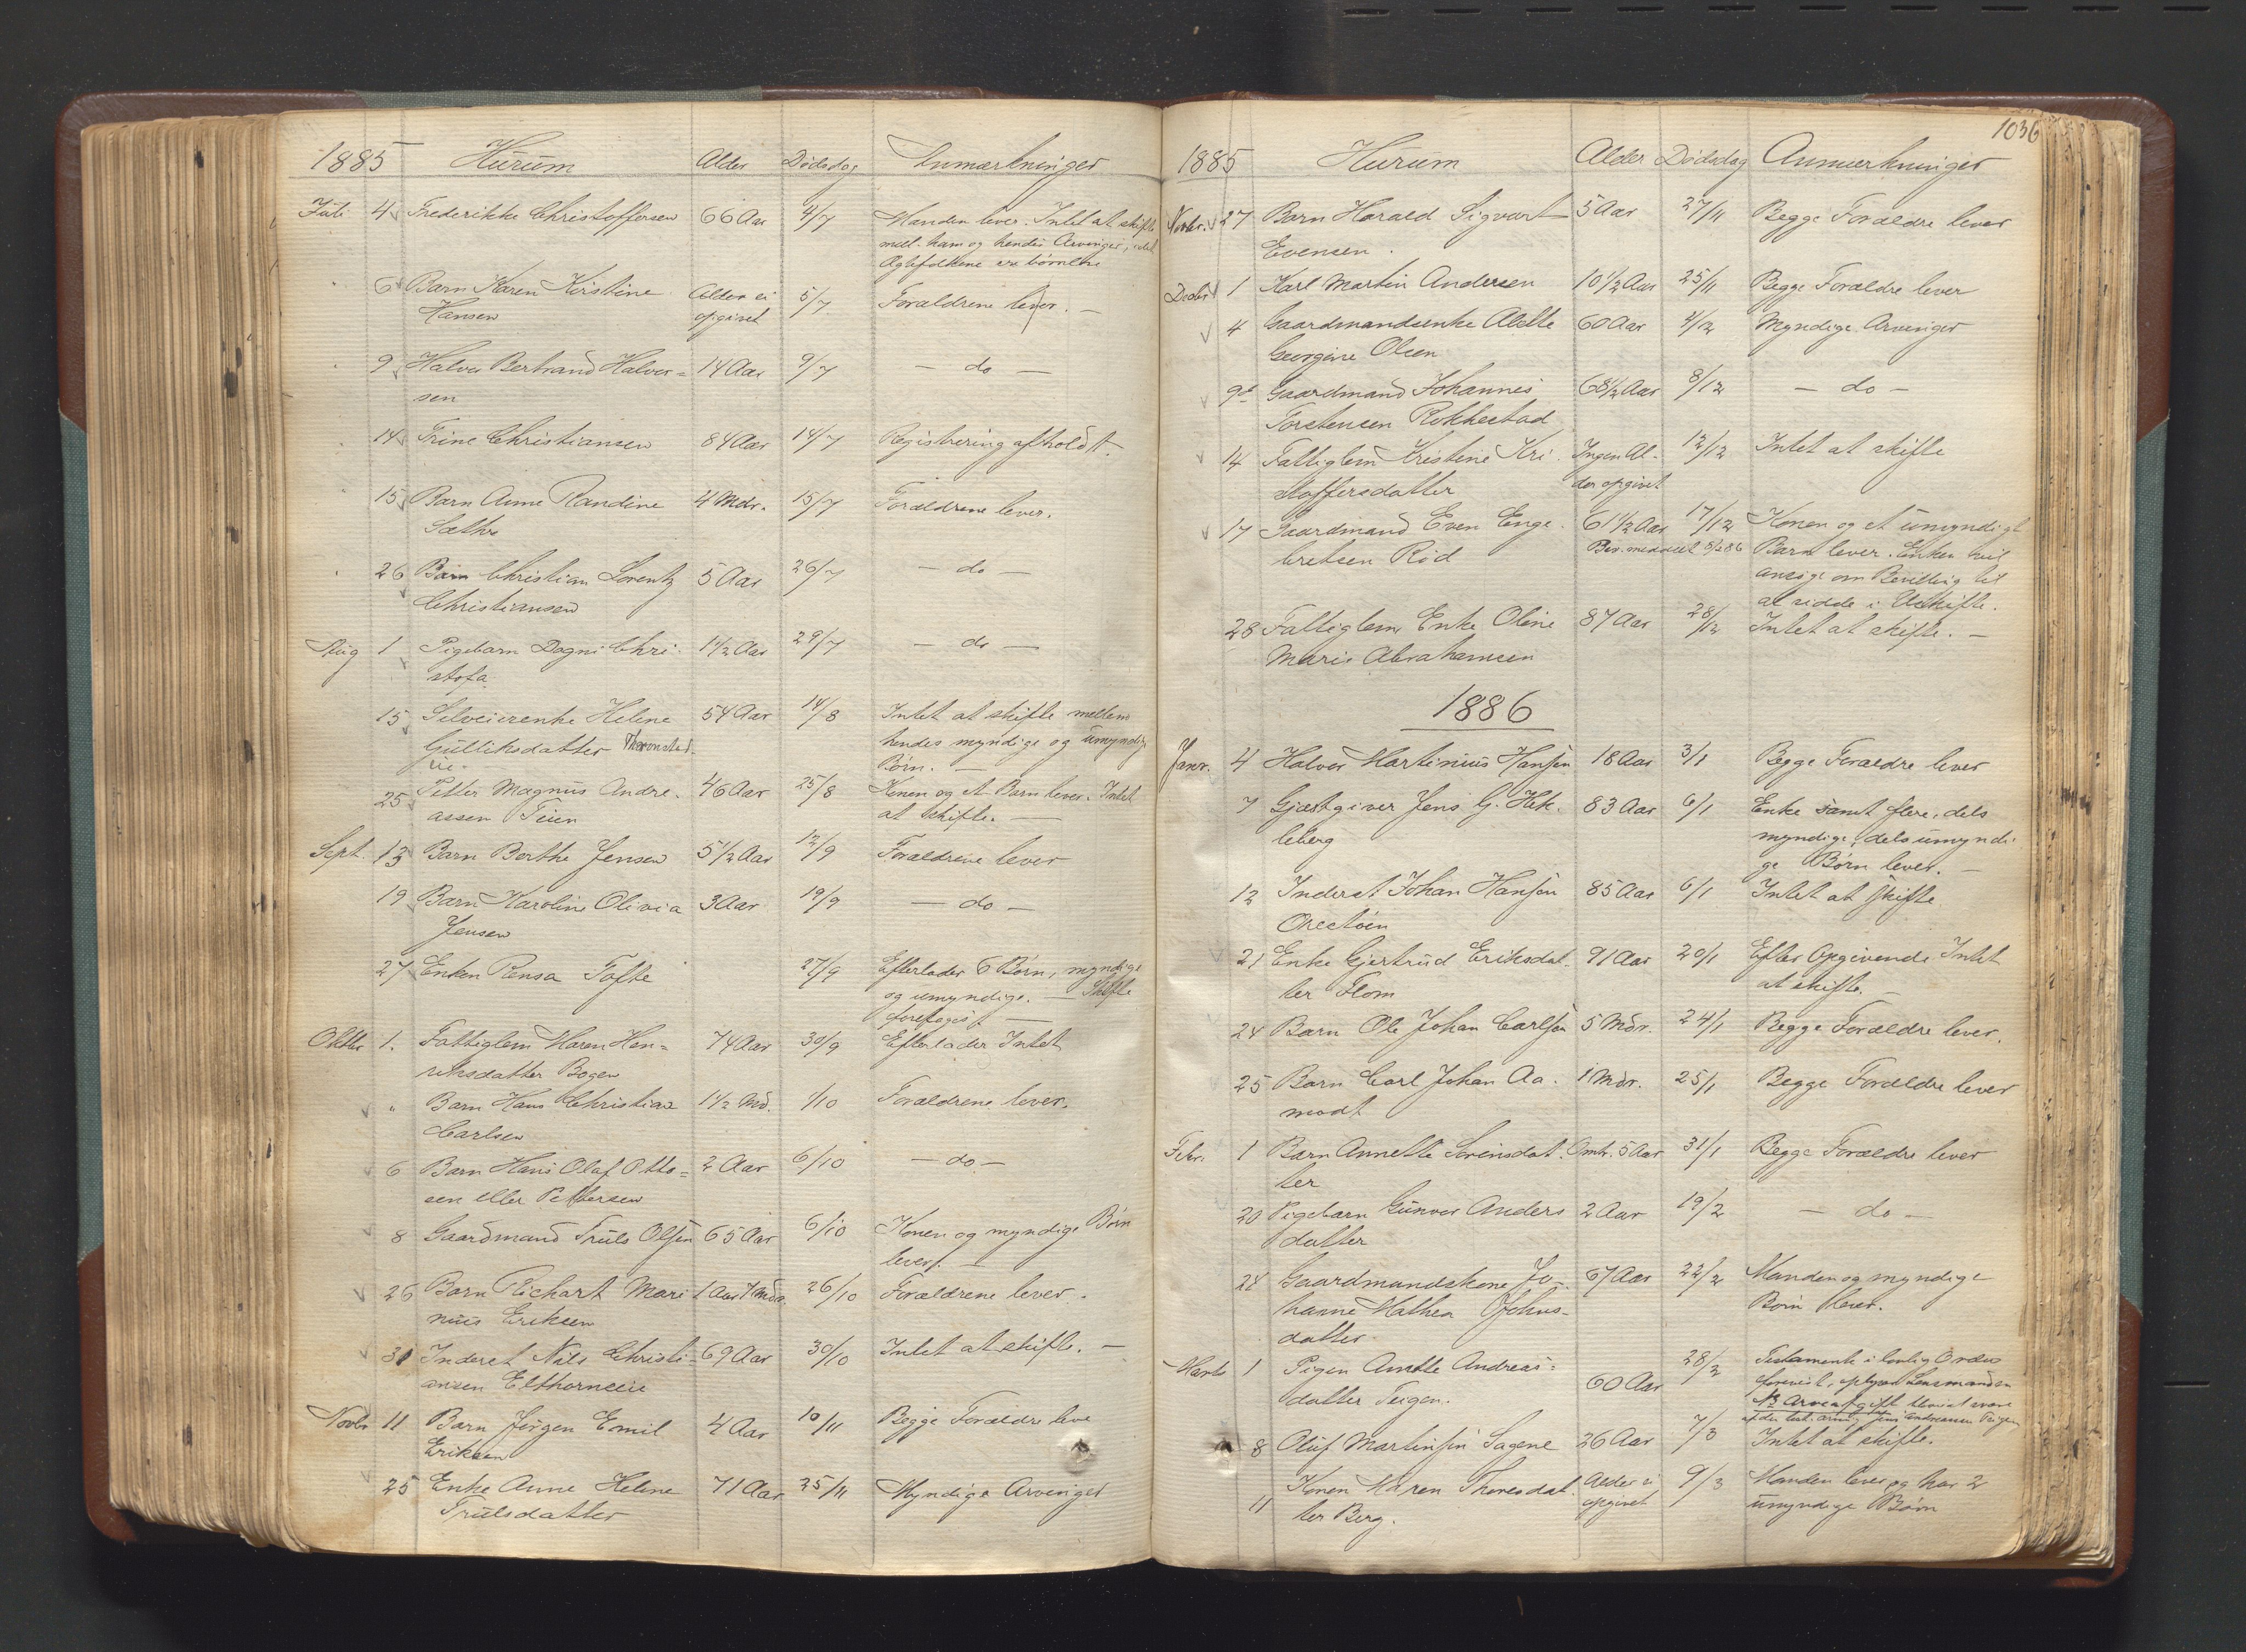 1885 Hurum Alder Dødsdag Anmærkninger
Juli 4 Frederikke Christoffersen 66 Aar 4/7 Manden lever. Intet at skifte
mell. ham og hendes Arvinger, idet
Ægtefolkene ere børnløse
6 Barn Karen Kirstine Alder ei 5/7 Forældrene lever. —
Hansen opgivet
9 Halvor Bertrand Halvor= 14 Aar 9/7 — do —
sen
14 Trine Christiansen 84 Aar 14/7 Registrering afholdt.
15 Barn Anne Randine 4 Mdr. 15/7 Forældrene lever.
Sæthre
26 Barn Christian Lorentz 5 Aar 26/7 — do —
Christiansen
Aug 1 Pigebarn Dagni Chri- 1 1/2 Aar 29/7 — do —
stofa
15 Selveierenke Helene 54 Aar 14/8 Intet at skifte mellem
Gulliksdatter hendes myndige og umyndige
Børn. —
25 Petter Magnus Andre- 46 Aar 25/8 Konen og et Barn lever. Intet
assen Teien at skifte. —
Sept. 13 Barn Berthe Jensen 5 1/2 Aar 12/9 Forældrene lever
19 Barn Karoline Olivia 3 Aar 19/9 — do —
Jensen
27 Enken Rensa Tofte 27/9 Efterlader 6 Børn, myndige
og umyndige. — Skifte
foretages. —
Oktbr 1. Fattiglem Maren Hen= 74 Aar 30/9 Efterlader Intet
riksdatter Bogen
" Barn Hans Christian 1 1/2 Md. 1/10 Forældrene lever.
Carlsen
6 Barn Hans Olaf Otto= 2 Aar 6/10 — do —
sen eller Pettersen
8 Gaardmand Truls Olsen 65 Aar 6/10 Konen og myndige Børn
lever. —
26 Barn Richart Mari 1 Aar 7 Mdr. 26/10 Forældrene lever.
nius Eriksen
31 Inderst Nils Christi= 69 Aar 30/10 Intet at skifte. —
ansen Elthorneie
Novbr 11 Barn Jørgen Emil 4 Aar 10/11 Begge Forældre leve
Eriksen
25 Enke Anne Helene 71 Aar 25/11 Myndige Arvinger
Trulsdatter
1036
1885 Hurum Alder Dødsdag Anmærkninger
Novbr. 27 Barn Harald Sigvart 5 Aar 27/11 Begge Forældre lever
Evensen.
Decbr 1 Karl Martin Andersen 10 1/2 Aar 25/11 Begge Forældre lever
4 Gaardmandsenke Alette 60 Aar 4/12 Myndige Arvinger
Georgine Olsen
9 Gaardmand Johannes 68 1/2 Aar 8/12 — do —
Torstensen Rokkestad
14 Fattiglem Kristine Kri- Ingen Al- 12/12 Intet at skifte
stoffersdatter der opgivet
17 Gaardmand Even Enge- 61 1/2 Aar 17/12 Konen og et umyndigt
bretsen Rød Bev. meddelt 8/2 86 Barn lever. Enken vil
ansøge om Bevilling til
at sidde i Uskifte.
28 Fattiglem Enke Oline 87 Aar 28/12 Intet at skifte. —
Marie Abrahamsen
1886
Janr. 4 Halvor Martinius Hansen 18 Aar 3/1 Begge Forældre lever
7 Gjæstgiver Jens G. Hek- 83 Aar 6/1 Enke samt flere, dels
leberg myndige, dels umyndi-
ge Børn lever. —
12 Inderst Johan Hansen 85 Aar 6/1 Intet at skifte
21 Enke Gjertrud Eriksdat- 91 Aar 20/1 Efter Opgivende Intet
ter Flom at skifte. —
24 Barn Ole Johan Carlsen 5 Mdr. 24/1 Begge Forældre lever.
25 Barn Carl Johan Aa- 1 Mdr. 25/1 Begge Forældre lever
modt
Febr. 1 Barn Annette Sørensdat- Omtr. 5 Aar 31/1 Begge Forældre lever
ter
20 Pigebarn Gunvor Anders 2 Aar 19/2 — do —
datter
24 Gaardmandskone Jo- 67 Aar 22/2 Manden og myndige
hanne Mathea Ophus- Børn lever.
datter
Marts 1 Pigen Anette Andreas= 60 Aar 28/2 Testamente i lovlig Orden
datter Teigen. forevist, oplyser Lensmanden
af den test. arving Jens Andreassen Teigen
8 Oluf Martinsen Sagene 26 Aar 7/3 Intet at skifte.
11 Konen Maren Thoresdat- Alder ei 9/3 Manden lever og har 2
ter Berg. opgivet umyndige Børn